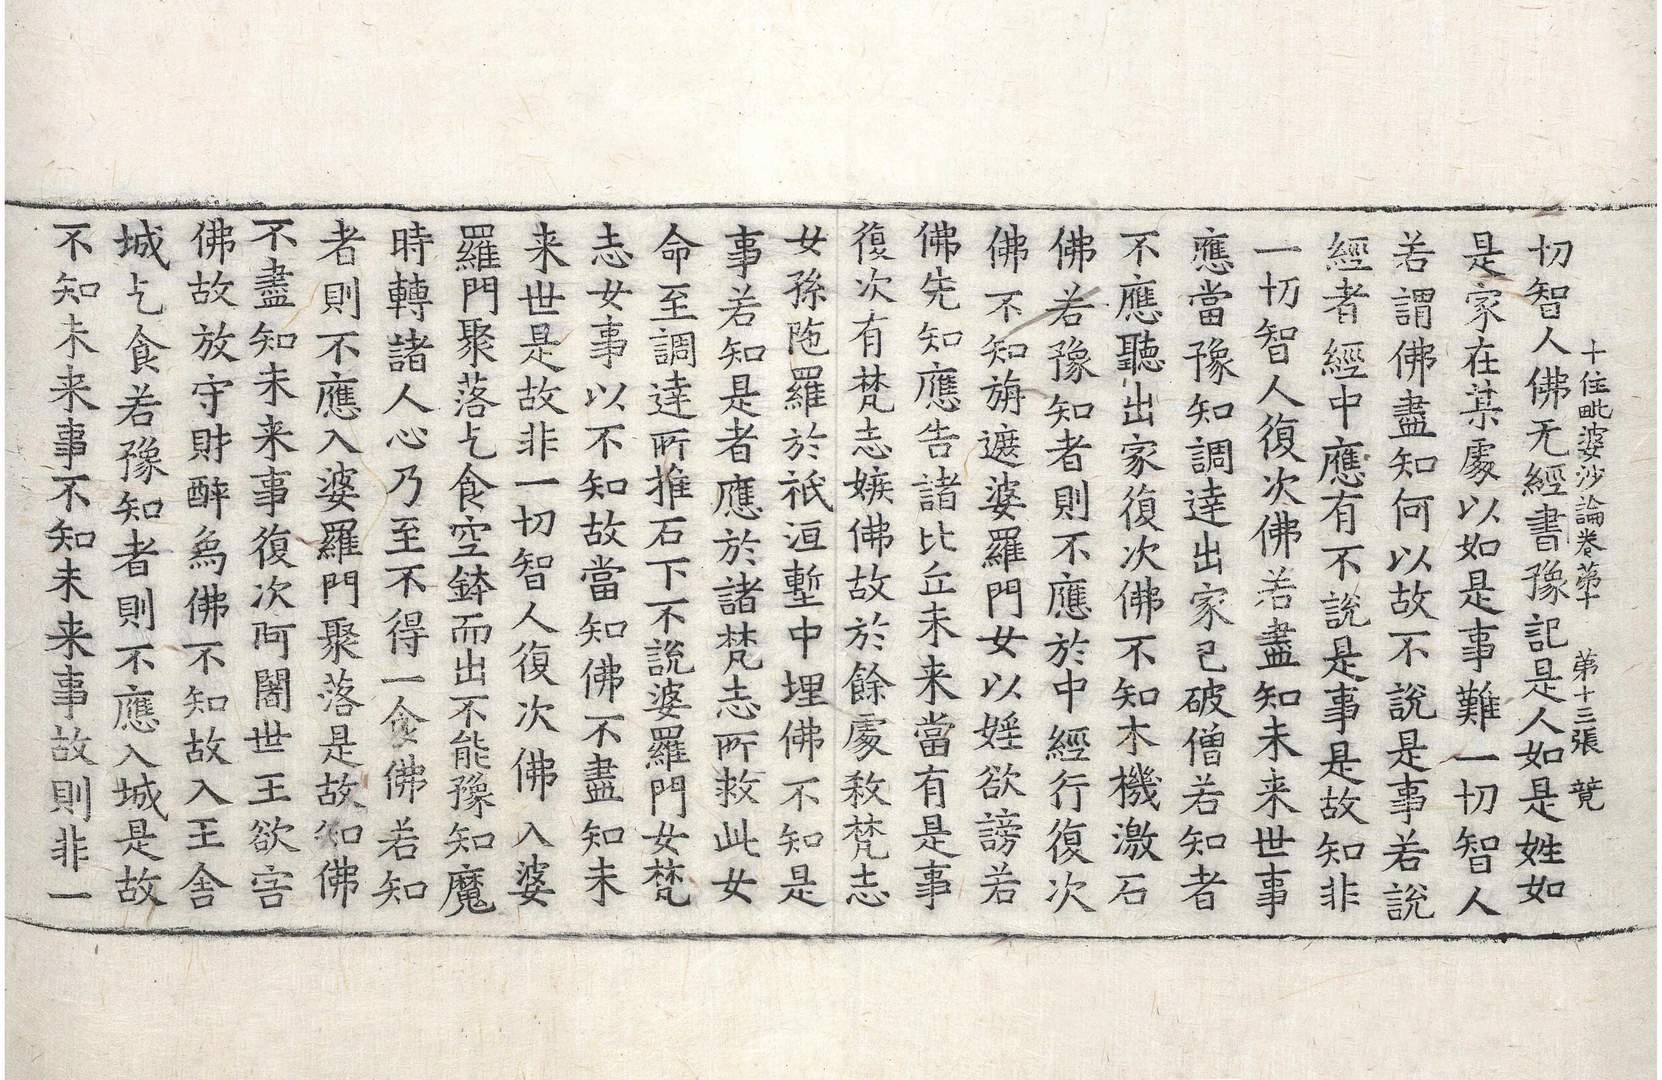 十住毗婆沙論卷苐十 苐十三張 竟
切智人佛无經書豫記是人如是姓如
是家在某處以如是事難一切智人
若謂佛盡知何以故不說是事若說
經者經中應有不說是事是故知非
一切智人復次佛若盡知未来世事
應當豫知調達出家已破僧若知者
不應聽出家復次佛不知木機激石
佛若豫知者則不應於中經行復次
佛不知旃遮婆羅門女以婬欲謗若
佛先知應告諸比丘未来當有是事
復次有梵志嫉佛故於餘處敎梵志
女孫陁羅於祇洹塹中埋佛不知是
事若知是者應於諸梵志所救此女
命至調達所推石下不說婆羅門女梵
志女事以不知故當知佛不盡知未
来世是故非一切智人復次佛入婆
羅門聚落乞食空鉢而出不能豫知魔
時轉諸人心乃至不得一食佛若知
者則不應入婆羅門聚落是故知佛
不盡知未来事復次阿闍世王欲害
佛故放守財醉象佛不知故入王舍
城乞食若豫知者則不應入城是故
不知未来事不知未来事故則非一